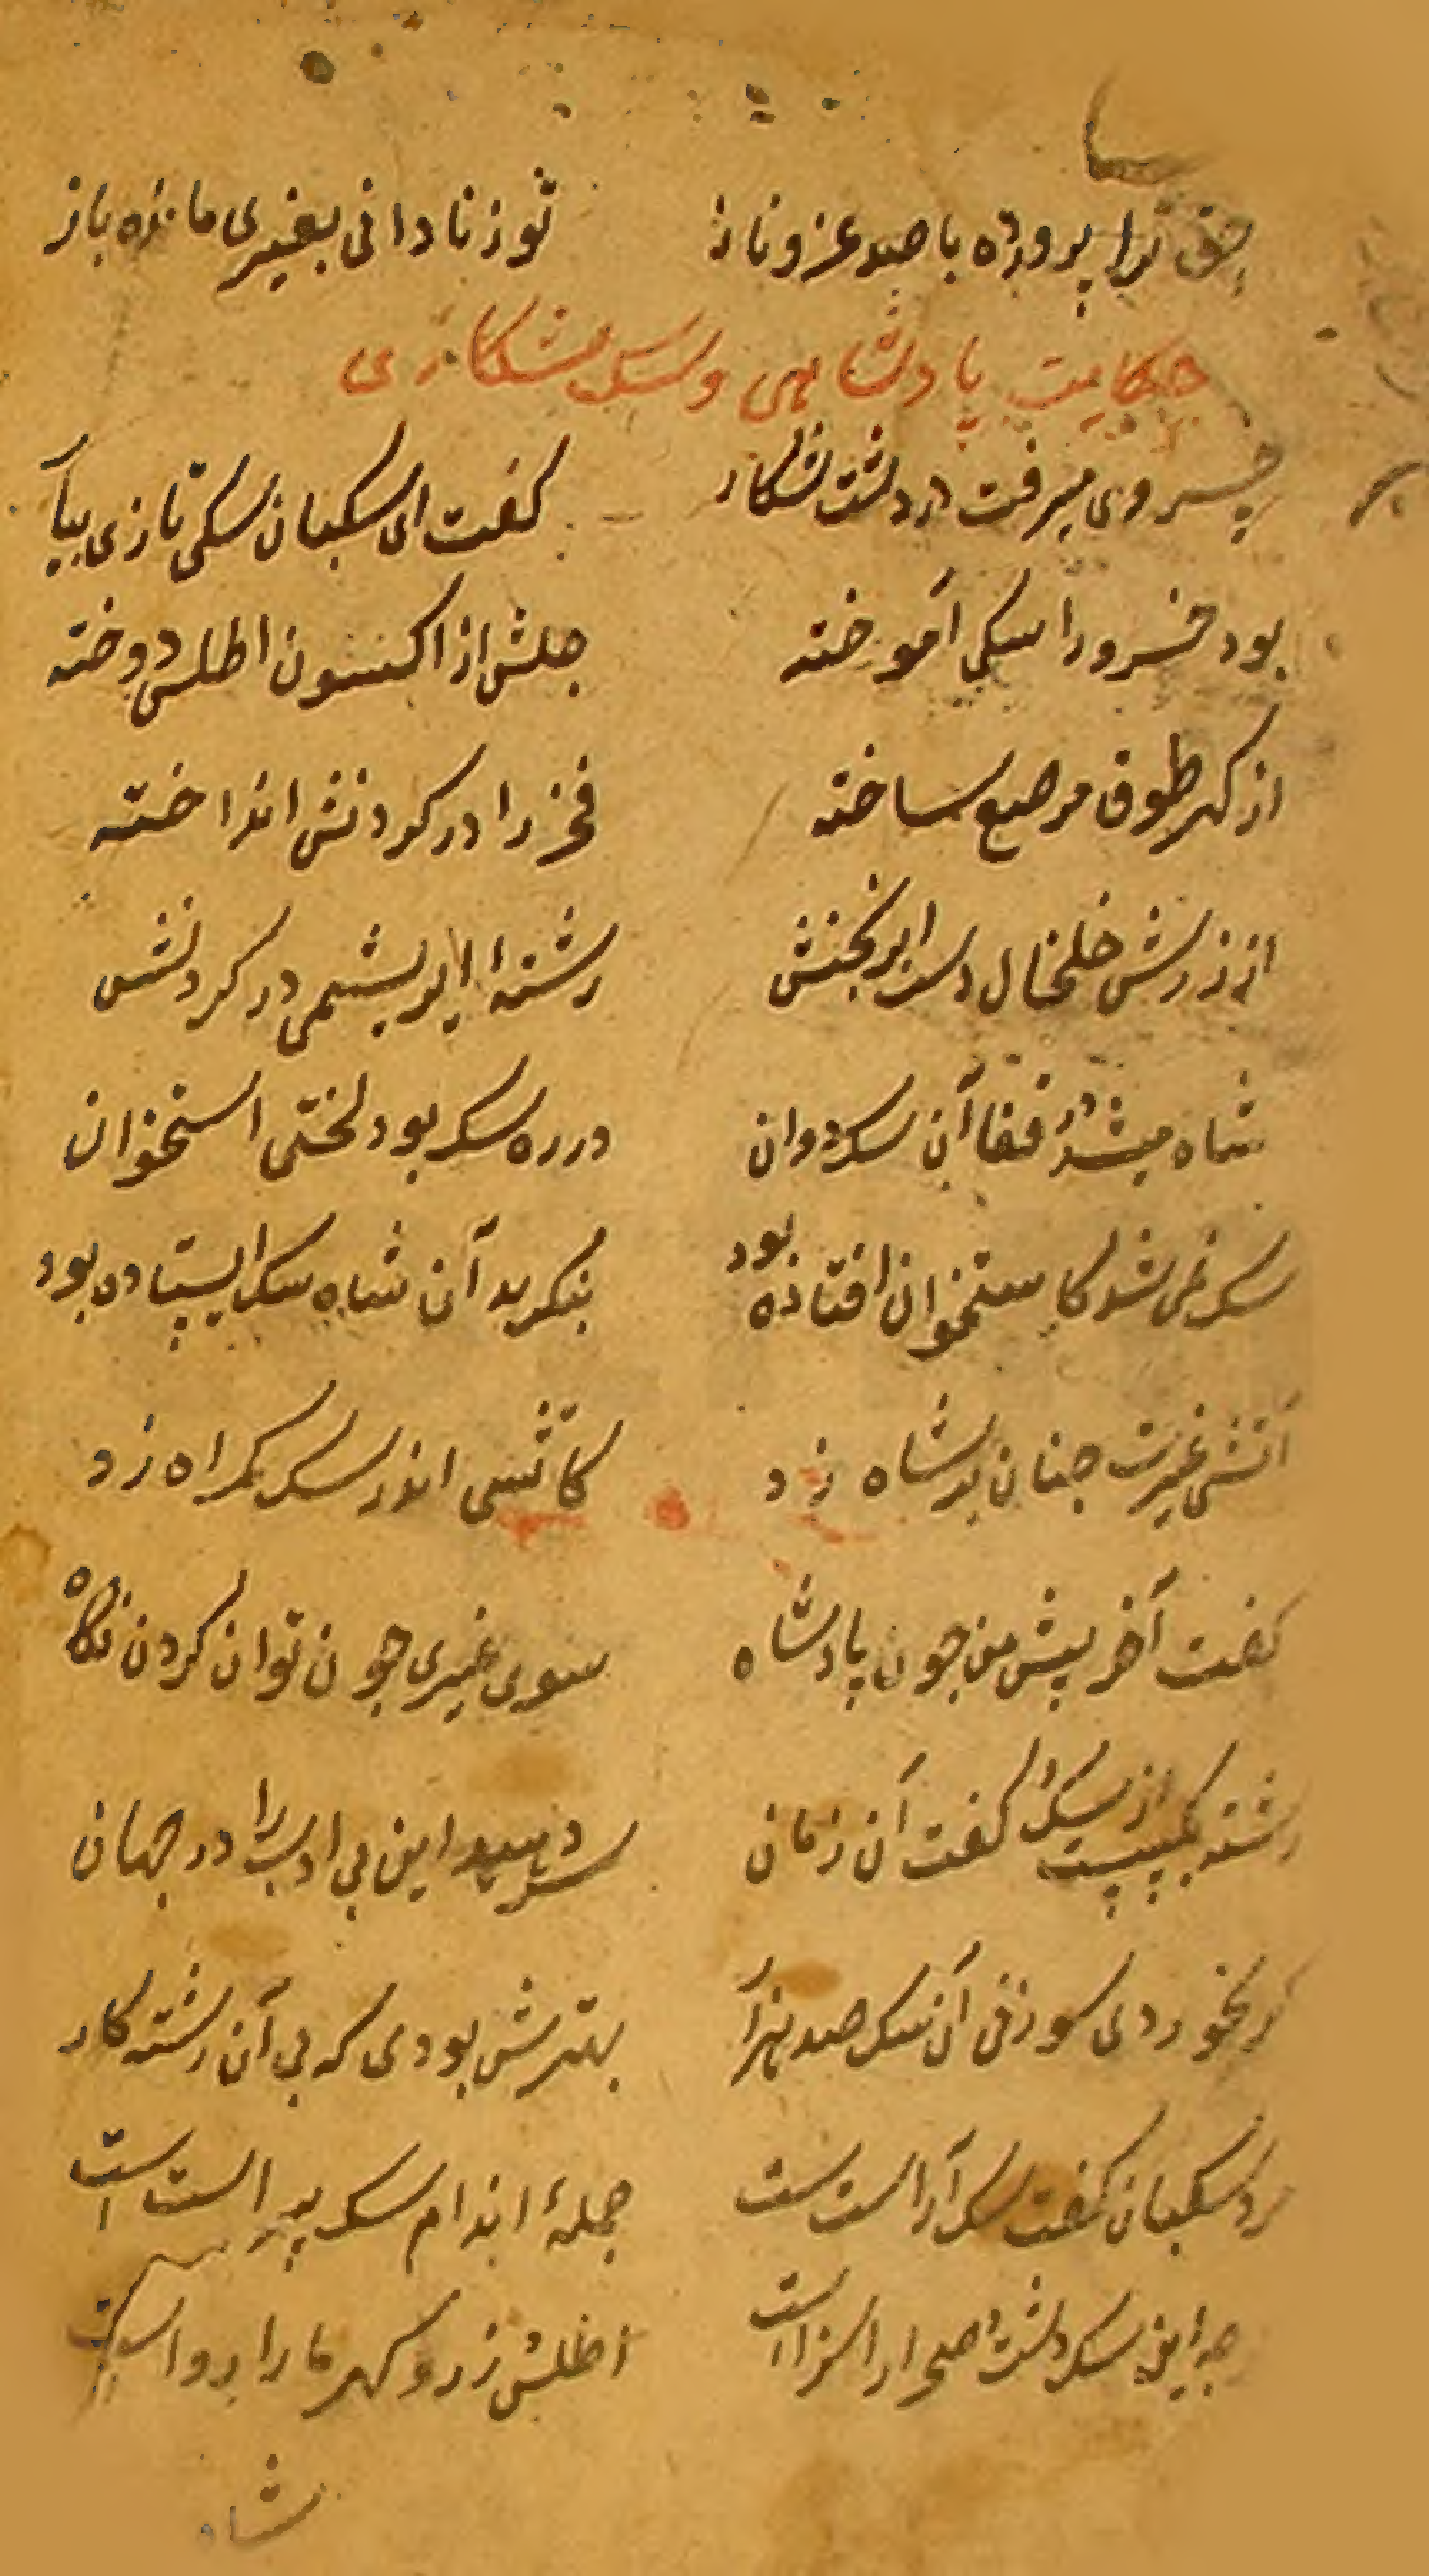 حق ترا پرورده با صد عز و ناز تو ز نادانی بغیری مانده باز
حکایت پادشاهی و سک شکاری
خسروی میرفت در دشت شکار کفت ای سکبان سکی تازی بیآ
بود خسرو را سکی آموخته جلش از اکسون اطلس دوخته
از کهر طوق مرصع ساخته فخر را در کردنش انداخته
از زرش خلخال دست ابرنجنش رشتهٔ ابریشمی در کردنش
شاه میشد در قفا آن سک دوان در ره سک بود لختی استخوان
سک نمی شد کاستخوان افتاده بود بنکرید آن شاه سک ایستاده بود
آتش غیرت چنان بر شاه زد کاتشی اندر سک کمراه زد
کفت آخر پیش من جون پادشاه سوی غیری جون توان کردن نکاه
رشته بکسیست از سک کفت آن زمان سر دهید این بی ادب را در جهان
کر بخوردی سوزنی آن سک صد هزآ بهترش بودی که بی آن رشته کار
مرد سکبان کفت سک آراست ست جملهٔ اندام سک پر است است
کرجه این سک دشت و صحرا را سزااست اطلس و زر و کهر ما را رواست
شاه